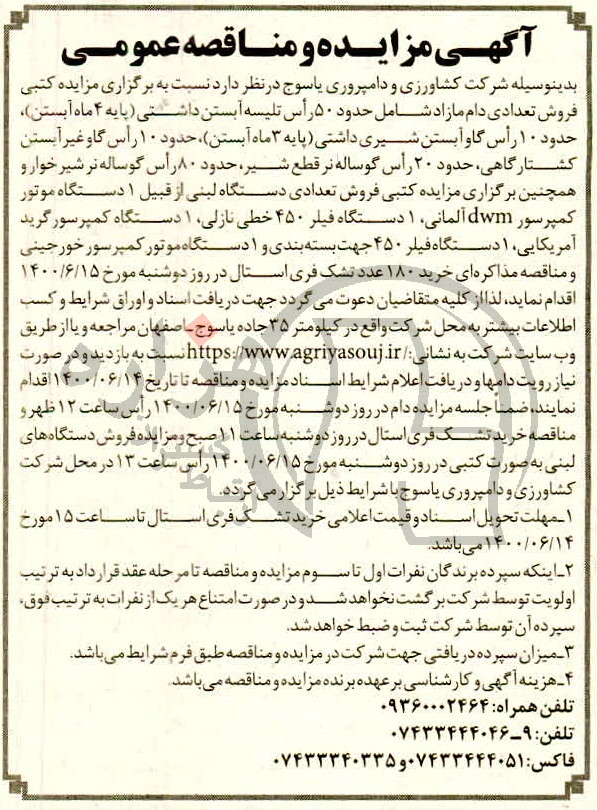 آگهی مزایده و مناقصه عمومی
بدینوسیله شرکت کشاورزی و دامپروری یاسوج در نظر دارد نسبت به برگزاری مزایده کتبی
فروش تعدادی دام مازاد شامل حدود ۵۰ رأس تلیسه آبستن داشتی (پایه ۴ ماه آبستن)،
حدود ۱۰ رأس گاو آبستن شیری داشتی (پایه ۳ ماه آبستن)، حدود ۱۰ رأس گاو غیر آبستن
کشتارگاهی، حدود ۲۰ رأس گوساله نر قطع شیر، حدود ۸۰ رأس گوساله نر شیرخوار و
همچنین برگزاری مزایده کتبی فروش تعدادی دستگاه لبنی از قبیل ۱ دستگاه موتور
کمپرسور dwm آلمانی، ۱ دستگاه فیلر ۴۵۰ خطی نازلی، ۱ دستگاه کمپرسور گرید
آمریکایی، ۱ دستگاه فیلر ۴۵۰ جهت بسته بندی و ۱ دستگاه موتور کمپرسور خورجینی
و مناقصه مذاکره‌ای خرید ۱۸۰ عدد تشک فری استال در روز دوشنبه مورخ ۱۴۰۰/۶/۱۵
اقدام نماید، لذا از کلیه متقاضیان دعوت می گردد جهت دریافت اسناد و اوراق شرایط و کسب
اطلاعات بیشتر به محل شرکت واقع در کیلومتر ۳۵ جاده یاسوج ـ اصفهان مراجعه و یا از طریق
وب سایت شرکت به نشانی: https://www.agriyasouj.ir/ نسبت به بازدید و در صورت
نیاز رویت دامها و دریافت اعلام شرایط اسناد مزایده و مناقصه تا تاریخ ۱۴۰۰/۰۶/۱۴ اقدام
نمایند، ضمناً جلسه مزایده دام در روز دوشنبه مورخ ۱۴۰۰/۰۶/۱۵ رأس ساعت ۱۲ ظهر و
مناقصه خرید تشک فری استال در روز دوشنبه ساعت ۱۱ صبح و مزایده فروش دستگاه های
لبنی به صورت کتبی در روز دوشنبه مورخ ۱۴۰۰/۰۶/۱۵ رأس ساعت ۱۳ در محل شرکت
کشاورزی و دامپروری یاسوج با شرایط ذیل برگزار می گردد.
۱ـ مهلت تحویل اسناد و قیمت اعلامی خرید تشک فری استال تا ساعت ۱۵ مورخ
۱۴۰۰/۰۶/۱۴ می باشد.
۲ـ اینکه سپرده برندگان نفرات اول تا سوم مزایده و مناقصه تا مرحله عقد قرارداد به ترتیب
اولویت توسط شرکت برگشت نخواهد شد و در صورت امتناع هر یک از نفرات به ترتیب فوق،
سپرده آن توسط شرکت ثبت و ضبط خواهد شد.
۳ـ میزان سپرده دریافتی جهت شرکت در مزایده و مناقصه طبق فرم شرایط می باشد.
۴ـ هزینه آگهی و کارشناسی بر عهده برنده مزایده و مناقصه می باشد.
تلفن همراه: ۰۹۳۶۰۰۰۲۴۶۴
تلفن: ۹ـ۰۷۴۳۳۴۴۴۰۴۶
فاکس: ۰۷۴۳۳۴۴۴۰۵۱ و ۰۷۴۳۳۳۴۰۳۳۵
هزاره